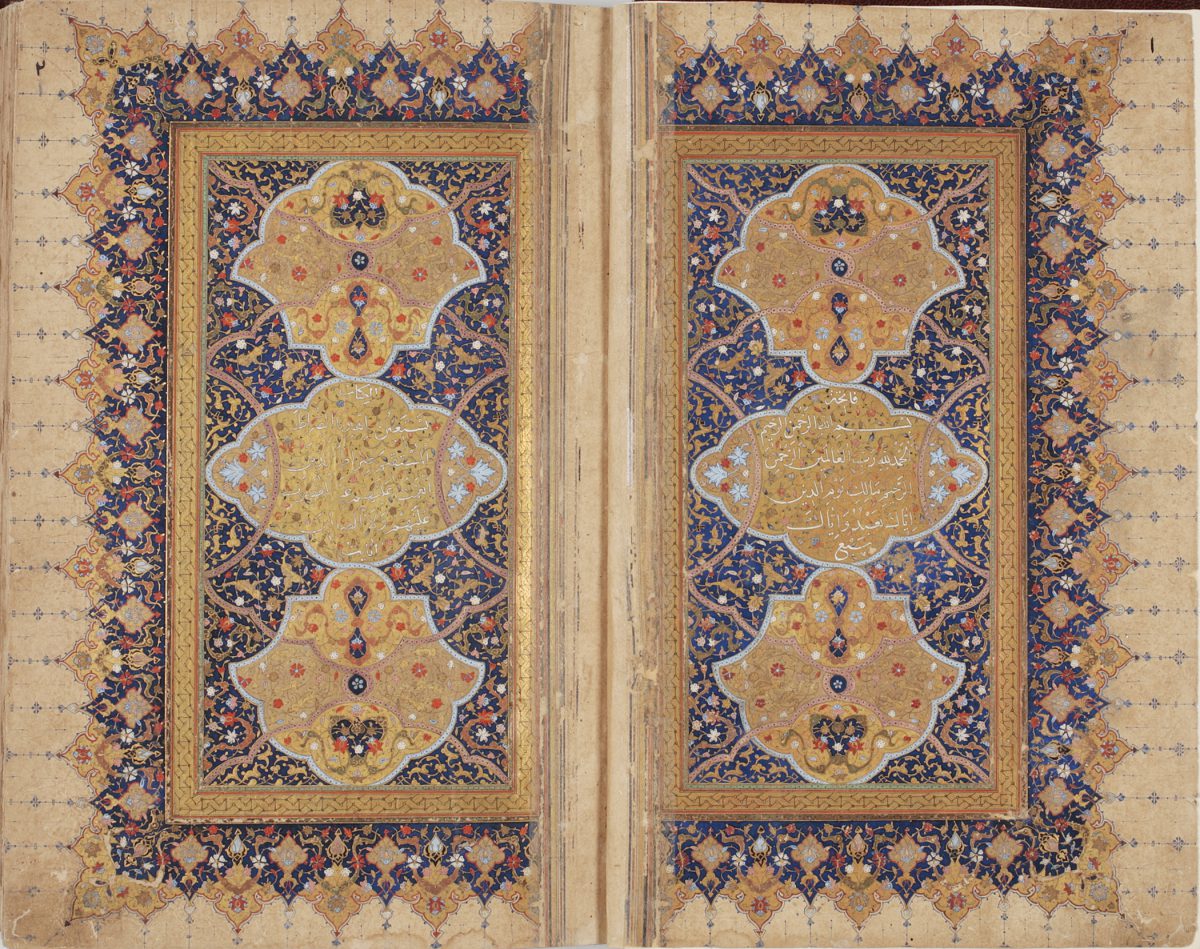 ١
فاتحة
بسم الله الرحمن الرحيم
الحمد لله رب العالمين الرحمن
الرحيم مالك يوم الدين
إياك نعبد وإياك
نستعين
٢
الكتاب
نستعين اهدنا الصراط
المستقيم صراط الذين
أنعمت عليهم غير المغضوب
عليهم ولا الضالين